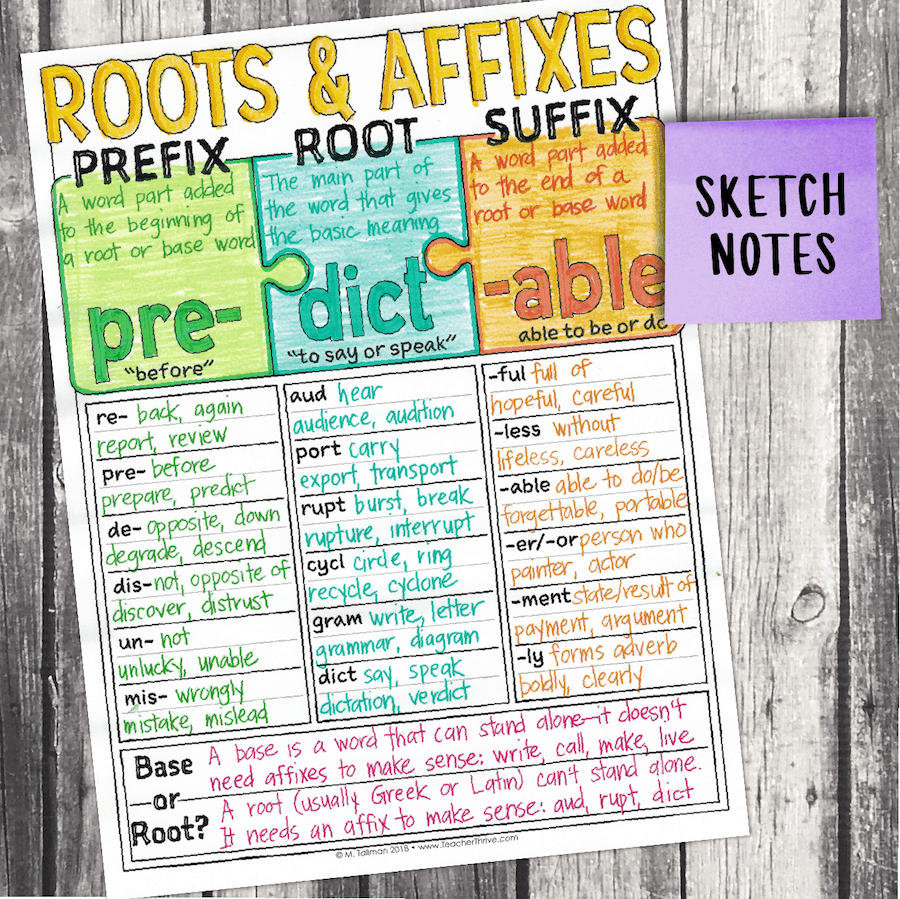 ROOTS & AFFIXES
PREFIX
A word part added
to the beginning of
a root or base word
pre-
"before"
ROOT
The main part of
the word that gives
the basic meaning
dict
"to say or speak"
SUFFIX
A word part added
to the end of a
root or base word
-able
able to be or do
SKETCH
NOTES
re- back, again
report, review
pre- before
prepare, predict
de- opposite, down
degrade, descend
dis- not, opposite of
discover, distrust
un- not
unlucky, unable
mis- wrongly
mistake, mislead
aud hear
audience, audition
port carry
export, transport
rupt burst, break
rupture, interrupt
cycl circle, ring
recycle, cyclone
gram write, letter
grammar, diagram
dict say, speak
dictation, verdict
-ful full of
hopeful, careful
-less without
lifeless, careless
-able able to do/be
forgettable, portable
-er/-or person who
painter, actor
-ment state/result of
payment, argument
-ly forms adverb
boldly, clearly
Base
or
Root?
A base is a word that can stand alone—it doesn't
need affixes to make sense: write, call, make, live
A root (usually Greek or Latin) can't stand alone.
It needs an affix to make sense: aud, rupt, dict
© M. Tallman 2018 • www.TeacherThrive.com